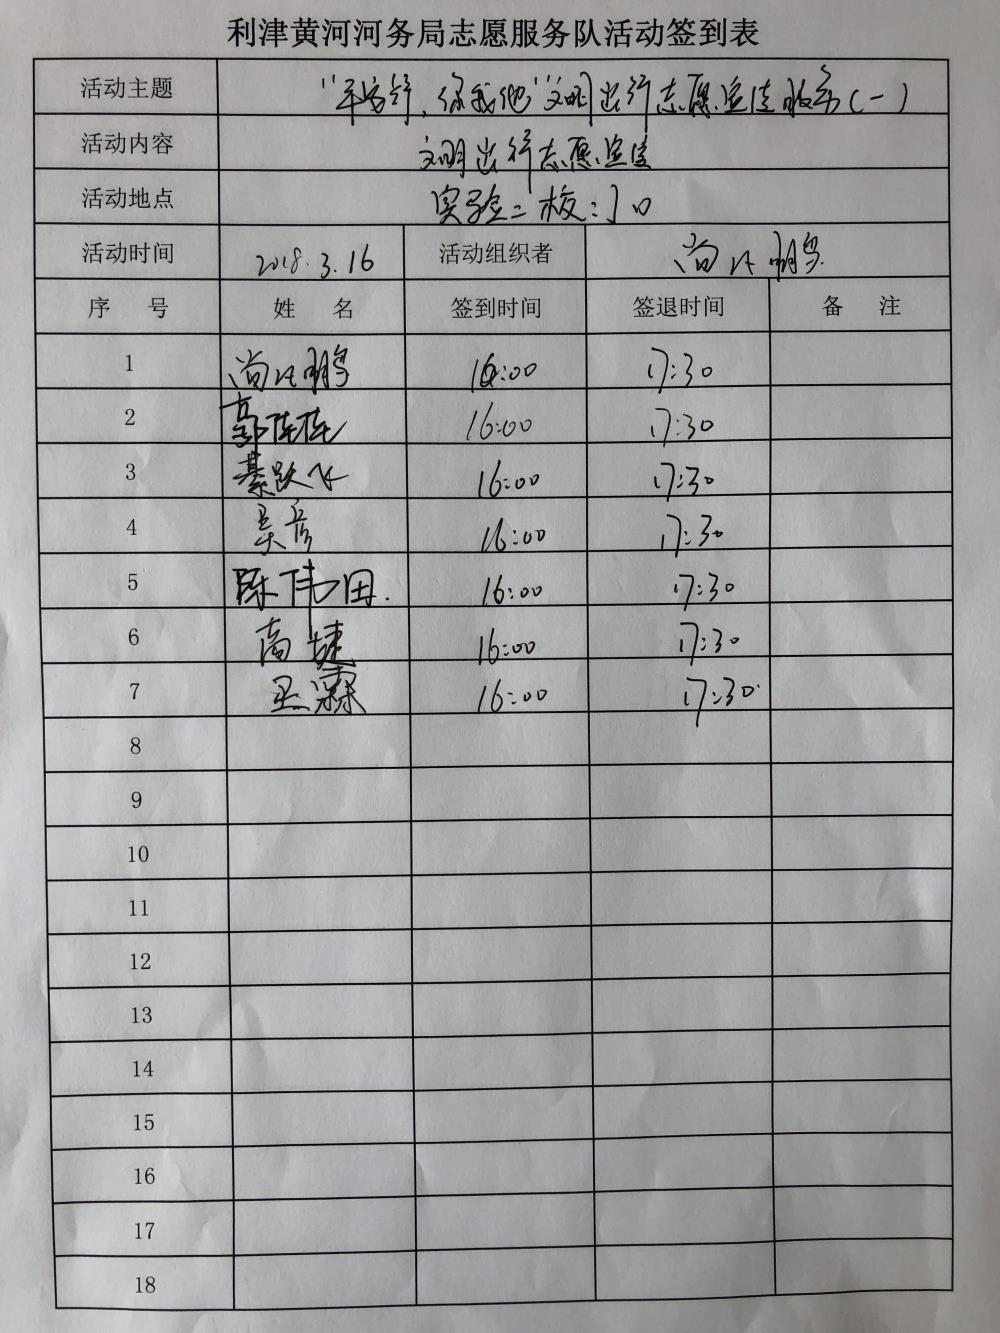 利津黄河河务局志愿服务队活动签到表
活动主题 “平安行，你我他”文明出行志愿宣传服务（一）
活动内容 文明出行志愿宣传
活动地点 实验二校门口
活动时间 2018.3.16 活动组织者 尚 鹏
序 号 姓 名 签到时间 签退时间 备 注
1 尚 鹏 16:00 17:30
2 郭陈陈 16:00 17:30
3 綦跃飞 16:00 17:30
4 吴彦 16:00 17:30
5 陈伟田. 16:00 17:30
6 高婕 16:00 17:30
7 王霖 16:00 17:30
8
9
10
11
12
13
14
15
16
17
18